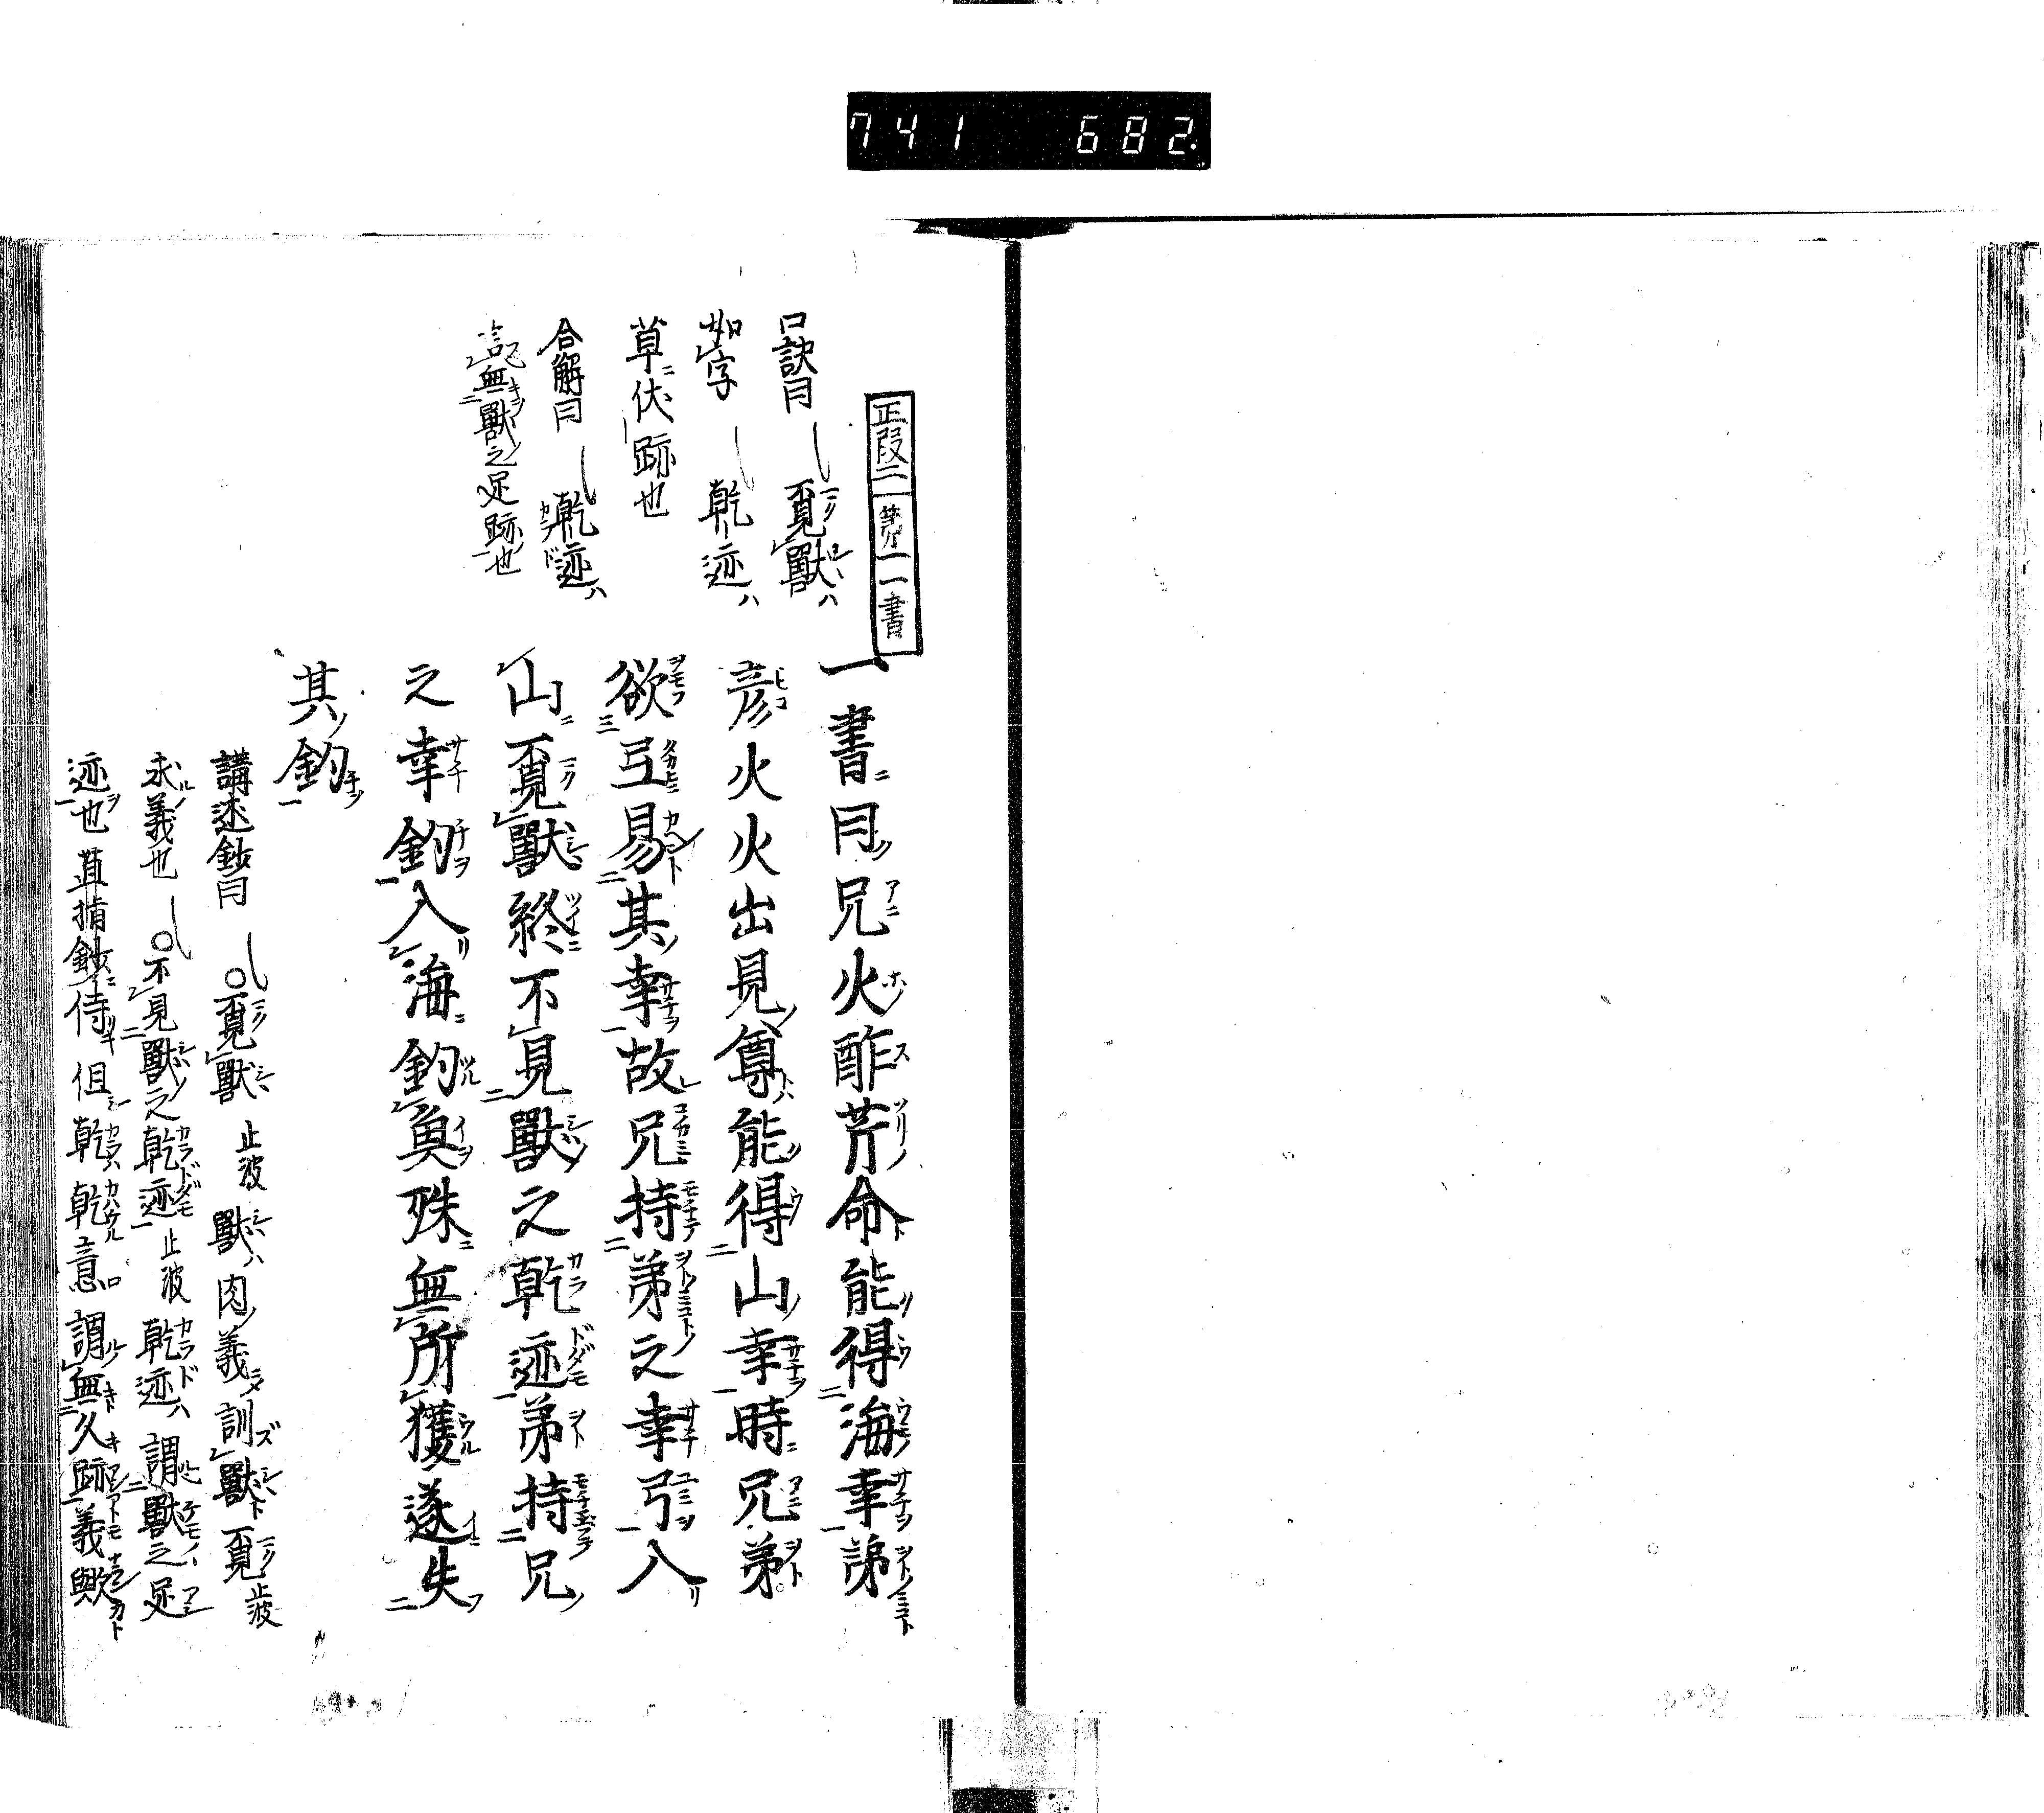 741 682.
正段二 第一一書
口訣曰 覓獸ハ
如字 乾迹ハ
草ニ伏ス跡也
合解曰 乾迹ハ
言無獸之足跡也
一書ニ曰兄火酢芹命能得海幸弟
彦火火出見尊能得山幸時ニ兄弟
欲互易其幸故兄持弟之幸弓入
山ニ覓獸終不見獸之乾迹弟持兄
之幸鈎入海ニ釣魚殊ニ無所獲遂失
其鈎
講述鈔曰 ○覓獸 止波 獸ハ肉ノ義訓獸ト覓 止波
求義也 ○不見獸之乾迹 止波 乾迹ハ謂獸之足
迹也直指鈔ニ侍 但シ乾乾意 謂無久跡義歟